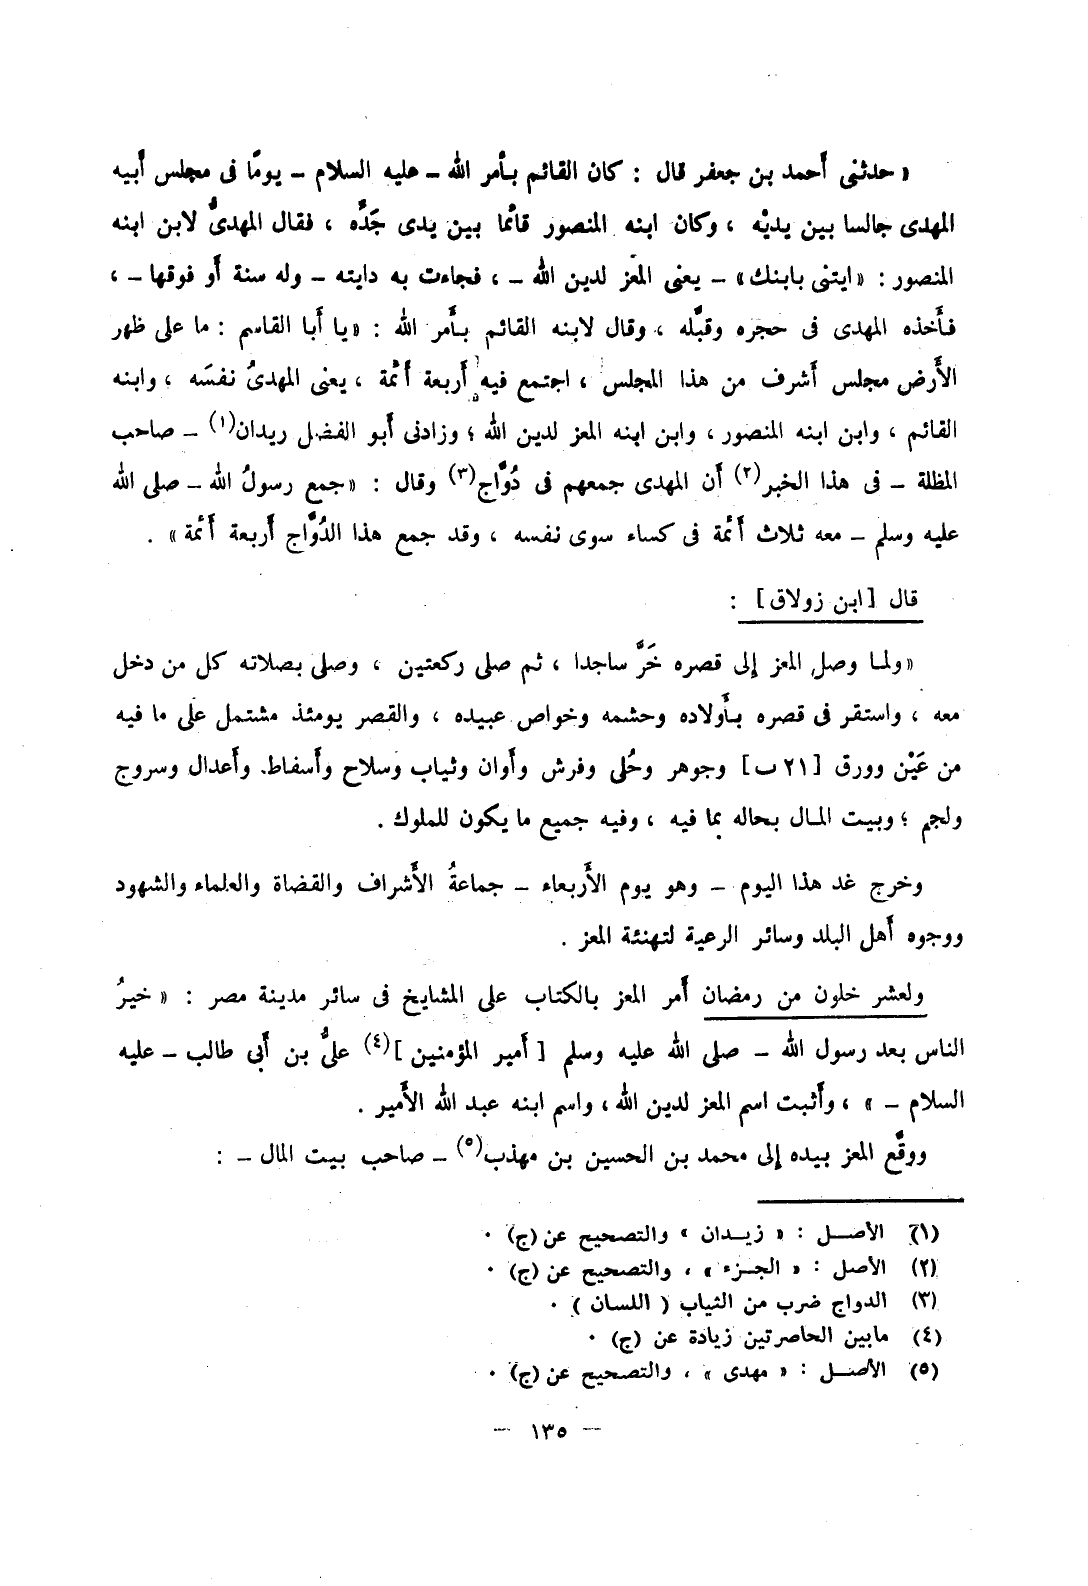 « حدثنى أحمد بن جعفر قال : كان القائم بأمر الله – عليه السلام – يومًا فى مجلس أبيه
المهدى جالسا بين يديْه ، وكان ابنه المنصور قائما بين يدى جَدَّه ، فقال المهدىُّ لابن ابنه
المنصور : «ايتنى بابنك» – يعنى المعز لدين الله – ، فجاءت به دايته – وله سنة أو فوقها – ،
فأخذه المهدى فى حجره وقبَّله ، وقال لابنه القائم بأمر الله : «يا أبا القاسم : ما على ظهر
الأرض مجلس أشرف من هذا المجلس ، اجتمع فيه أربعة أئمة ، يعنى المهدىُ نفسَه ، وابنه
القائم ، وابن ابنه المنصور ، وابن ابنه المعز لدين الله ؛ وزادنى أبو الفضل ريدان(١) – صاحب
المظلة – فى هذا الخبر(٢) أن المهدى جمعهم فى دُوَّاج(٣) وقال : «جمع رسولُ الله – صلى الله
عليه وسلم – معه ثلاث أئمة فى كساء سوى نفسه ، وقد جمع هذا الدُوَّاج أربعة أئمة» .
قال [ابن زولاق] :
«ولما وصل المعز إلى قصره خَرَّ ساجدا ، ثم صلى ركعتين ، وصلى بصلاته كل من دخل
معه ، واستقر فى قصره بأولاده وحشمه وخواص عبيده ، والقصر يومئذ مشتمل على ما فيه
من عَيْن وورق [٢١ ب] وجوهر وحُلى وفرش وأوان وثياب وسلاح وأسفاط. وأعدال وسروج
ولجم ؛ وبيت المال بحاله بما فيه ، وفيه جميع ما يكون للملوك .
وخرج غد هذا اليوم – وهو يوم الأربعاء – جماعةُ الأشراف والقضاة والعلماء والشهود
ووجوه أهل البلد وسائر الرعية لتهنئة المعز .
ولعشر خلون من رمضان أمر المعز بالكتاب على المشايخ فى سائر مدينة مصر : « خيرُ
الناس بعد رسول الله – صلى الله عليه وسلم [ أمير المؤمنين ](٤) علىُّ بن أبى طالب – عليه
السلام – » ، وأثبت اسم المعز لدين الله ، واسم ابنه عبد الله الأمير .
ووقَّع المعز بيده إلى محمد بن الحسين بن مهذب(٥) – صاحب بيت المال – :
(١) الأصل : « زيدان » والتصحيح عن (ج) ٠
(٢) الأصل : « الجزء » ، والتصحيح عن (ج) ٠
(٣) الدواج ضرب من الثياب ( اللسان ) ٠
(٤) مابين الحاصرتين زيادة عن (ج) ٠
(٥) الأصل : « مهدى » ، والتصحيح عن (ج) ٠
– ١٣٥ –